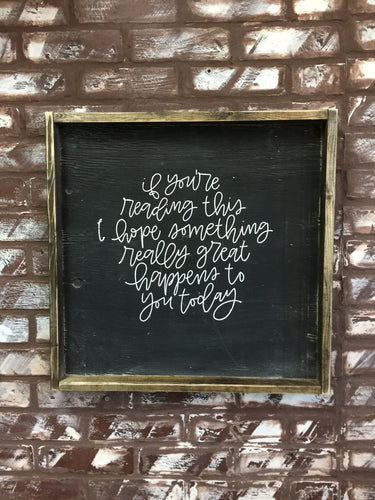 if you're
reading this
I hope something
really great
happens to
you today